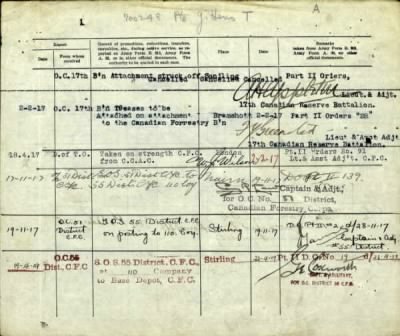 1.
700248 Pte T
A
Date From whom received
Record of promotions, reductions, transfers, casualties, etc., during active service, as reported on Army Form B. 213, Army Form A. 36, or in other official documents. The authority to be quoted in each case.
Place
Date
Remarks taken from Army Form B. 213, Army Form A. 36, or other official documents.
O.C.17th B'n Attachment struck off Cancelled Cancelled Cancelled Part II Orders,
Lieut. & Adjt.
17th Canadian Reserve Battalion.
2-2-17 O.C. 17th B'n Ceases to be Attached on attachment to the Canadian Forrestry B'n Bramshott 2-2-17 Part II Orders
Lieut & Asst Adjt
17th Canadian Reserve Battalion.
28.4.17 D.of T.O. Taken on strength C.F.C. from C.C.A.C. London 2-2-17 Pt.II Orders No. 91
Lt.& Asst Adjt. C.F.C.
17-11-17 55 Dist CFC to 110 Coy Nairn 19-11-17 139.
Captain & Adjt,
for O.C. No. 51 District,
Canadian Forestry Corps.
19-11-17 O.C. 51 District C.F.C. S.O.S. 55 District C.F.C on posting to 110 Coy. Stirling 19-11-17 d/28-11-17
Captain & Adjt
55 District
O.C.55 Dist. C.F.C S.O.S. 55 District, C.F.C., 110 Company to Base Depot, C.F.C. Stirling Pt II D.O. 19
CAPT. & ADJUTANT,
FOR O.C. DISTRICT 55 C.F.C.